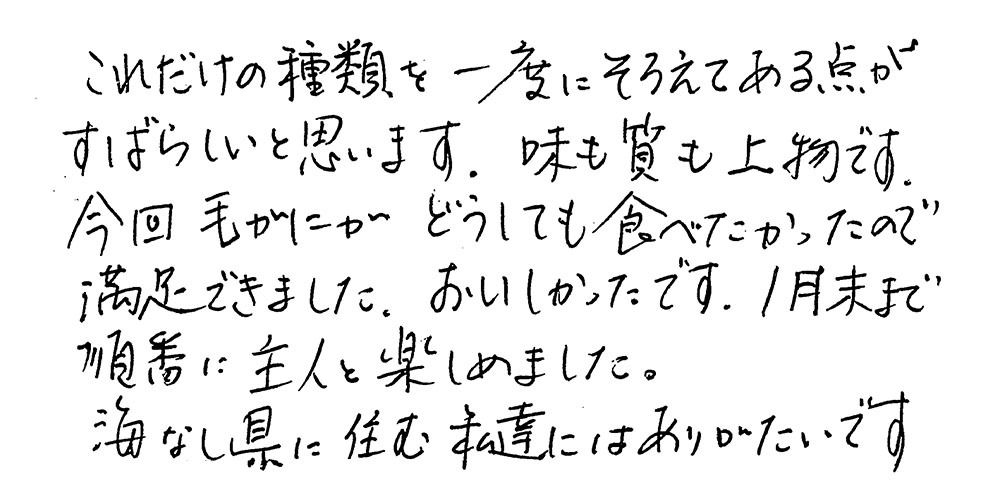 これだけの種類を一度にそろえてある点が
すばらしいと思います．味も質も上物です．
今回毛がにが どうしても食べたかったので
満足できました．おいしかったです．1月末まで
順番に主人と楽しめました。
海なし県に住む私達にはありがたいです